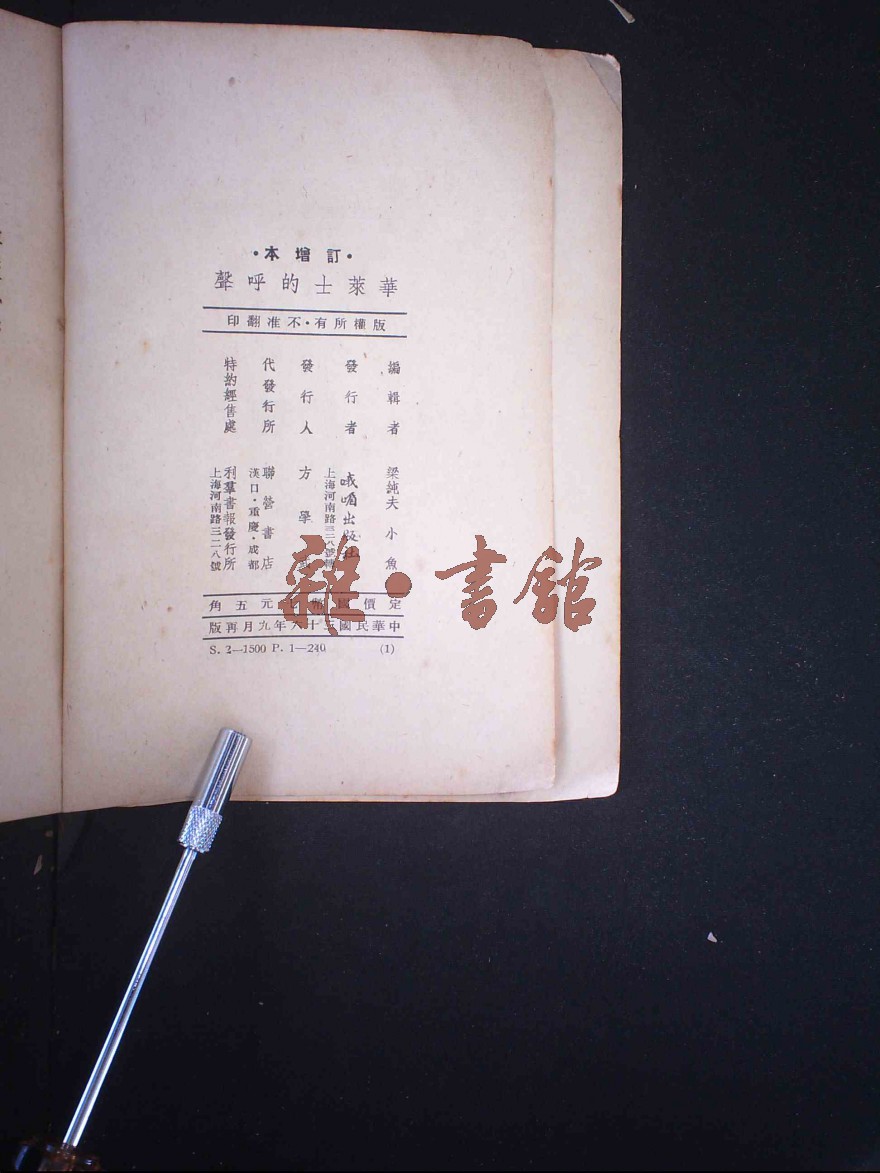 ·訂增本·
華萊士的呼聲
版權所有·不准翻印
編輯者 梁純夫 小魚
發行者 峨嵋出版社
上海河南路三二八號
發行人 方學
代發行所 聯營書店
漢口·重慶·成都
特約經售處 利羣書報發行所
上海河南路三二八號
定價國幣元五角
中華民國三十六年九月再版
S. 2—1500 P. 1—240 (1)
雜·書館